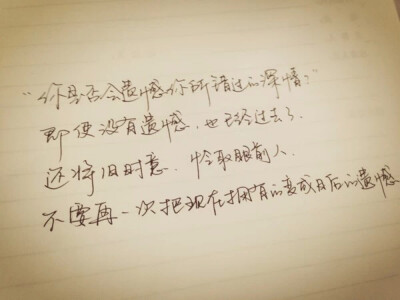 “你是否会遗憾你所错过的深情？”
即便没有遗憾，也已经过去了．
还将旧时意．怜取眼前人．
不要再一次把现在拥有的变成日后的遗憾